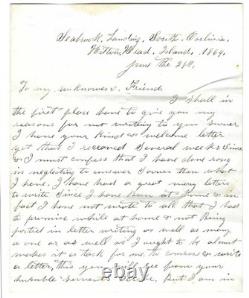 Seabrook, Landing, South, Carlina,
Hilton, Head, Island, 1864,
June the 28th,
To my unknown Friend
I shall in
the first place have to give you my
reasons for not writing to you sooner
I have your kind welcome letter
yet that I received several weeks
& I must confess that I have done wrong
in neglecting to answer sooner than what
I have. I have had a great many letters
to write since I have been at home
fact I have not wrote to all that I had
to promise while at home & not being
posted in letter writing as well as many
a one or as well as I ought to be
makes it a task for me to
a letter, this you will see from your
and, but I am in